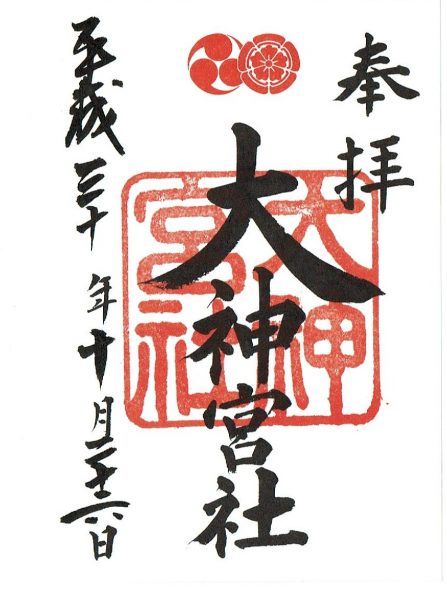 奉拝
大神宮社
大神
宮社
平成三十年十月二十六日